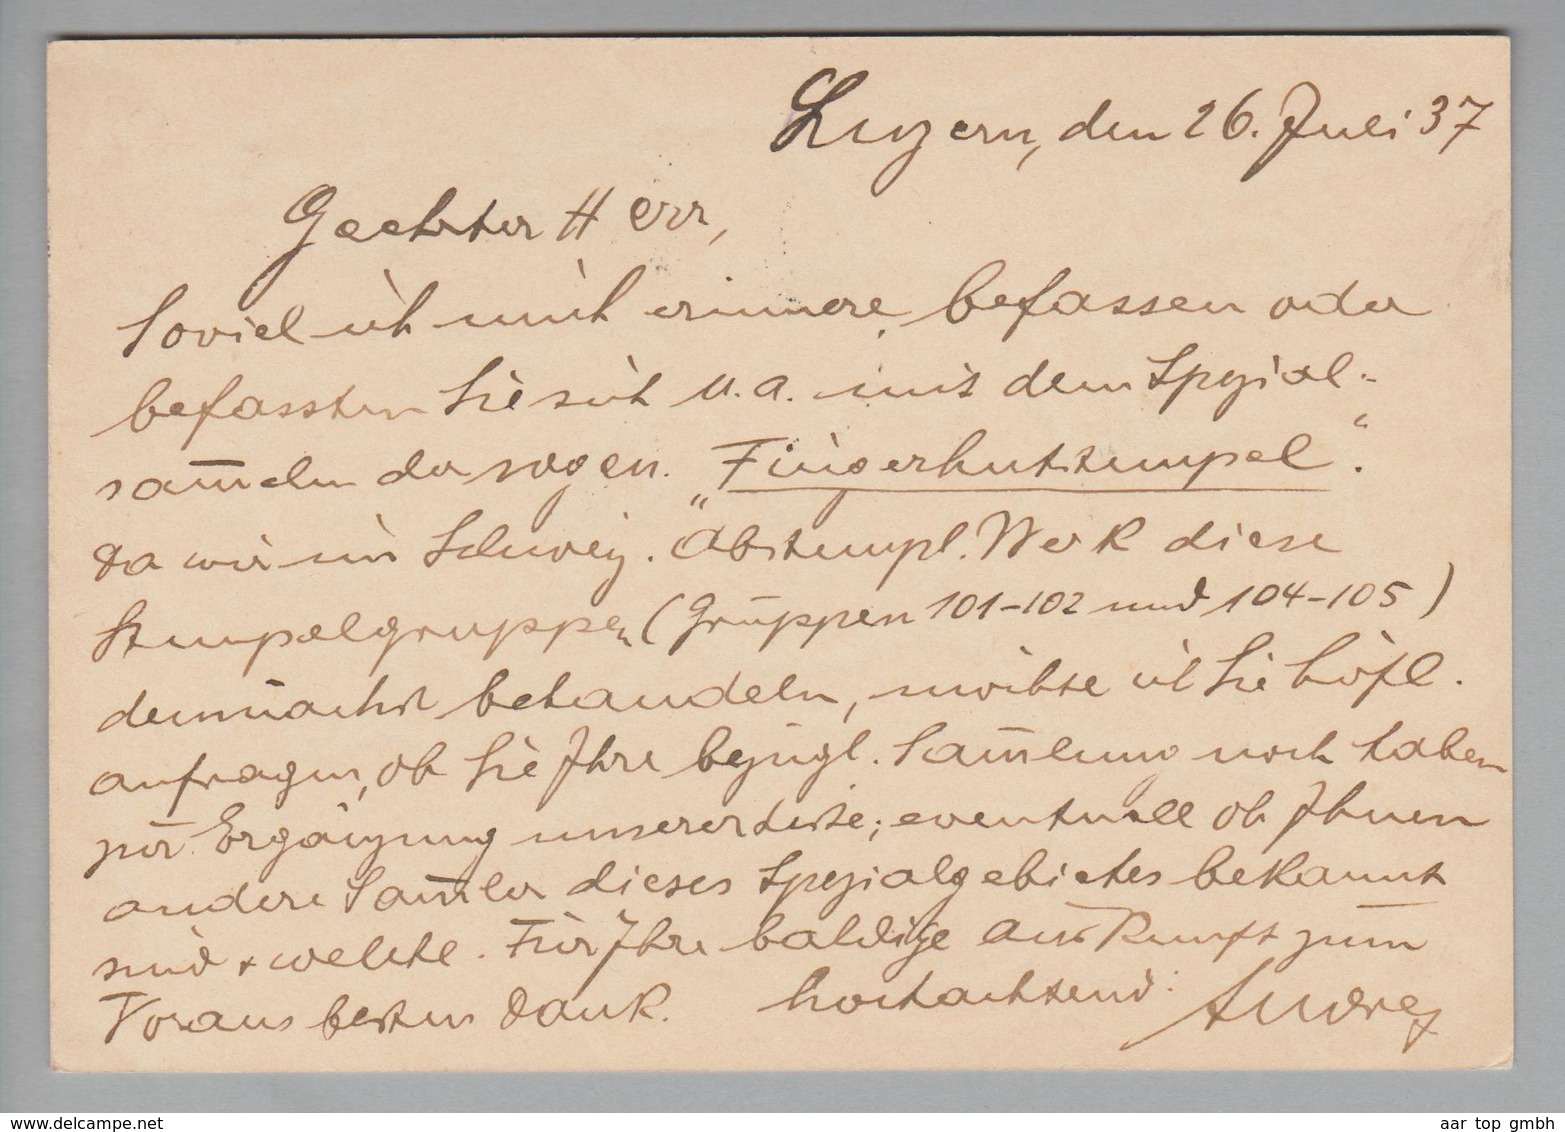 Luzern, den 26. Juli 37
Geehrter Herr,
Soviel ich mich erinnere, befassen oder
befassten Sie sich u. a. mit dem Spezial-
sam̅eln der sogen. „Fingerhutstempel“.
Da wir im Schweiz. Abstempl. Werk diese
Stempelgruppen (Gruppen 101-102 und 104-105)
demnächst behandeln, möchte ich Sie höfl.
anfragen, ob Sie Ihre bezügl. Sam̅lung noch haben
zur Ergänzung unserer Liste; eventuell ob Ihnen
andere Sam̅ler dieses Spezialgebietes bekannt
sind & welche. Für Ihre baldige Auskunft zum
Voraus besten Dank. hochachtend:
www.delcampe.net
aar top gmbh